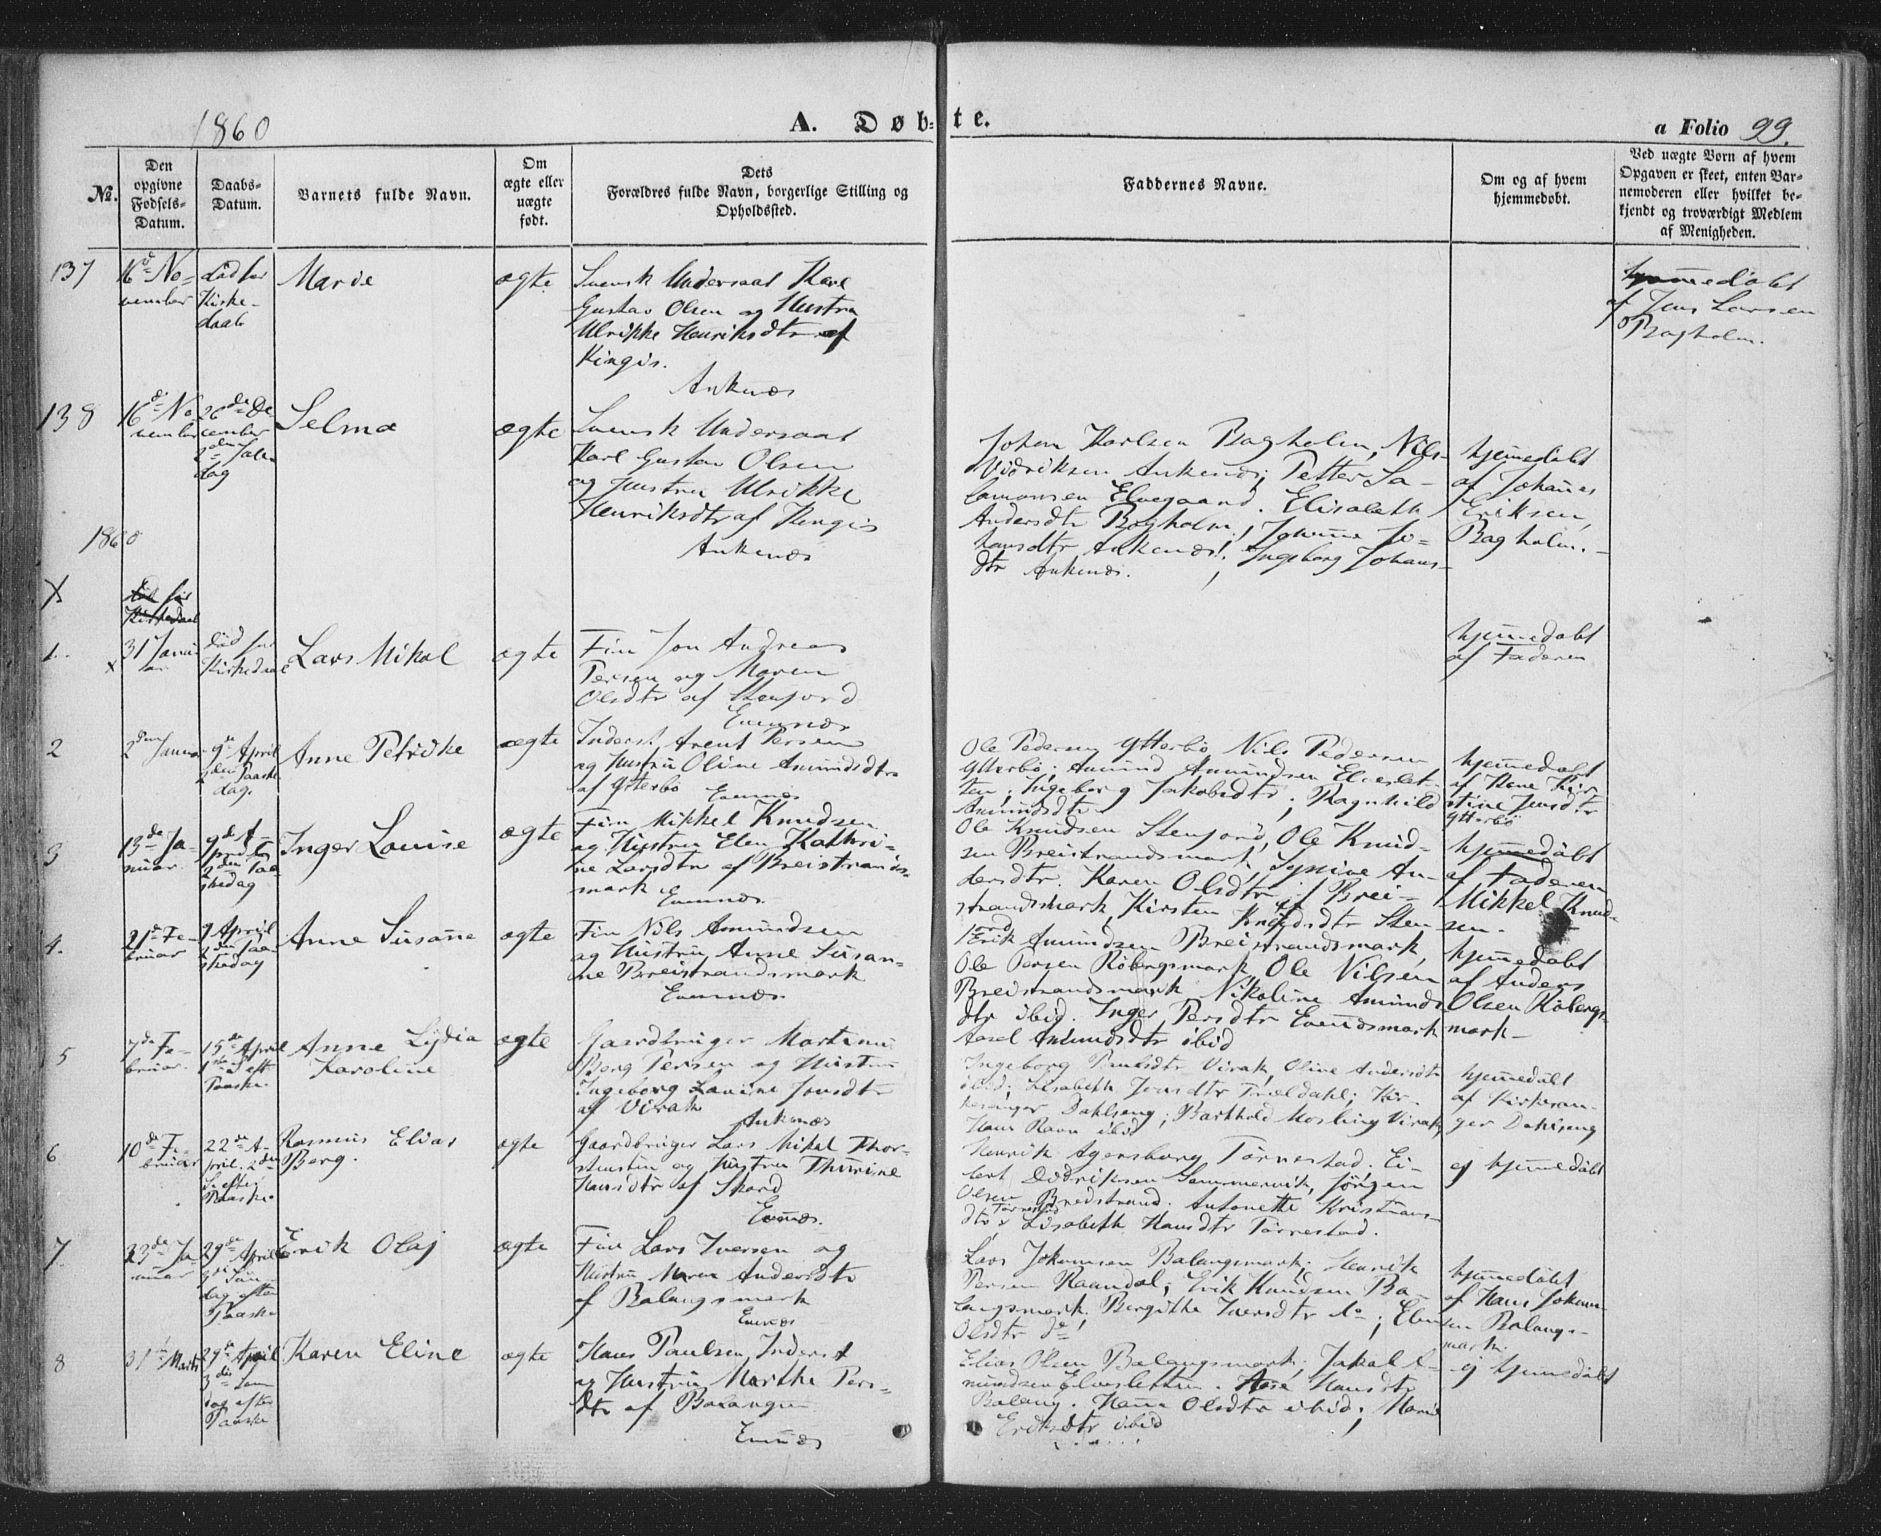 1860
A. Døb-te.
a Folio 99.
No.
Den opgivne Fødsels-Datum.
Daabs-Datum.
Barnets fulde Navn.
Om ægte eller uægte født.
Dets Forældres fulde Navn, borgerlige Stilling og Opholdssted.
Faddernes Navne.
Om og af hvem hjemmedøbt.
Ved uægte Børn af hvem Opgaven er skeet, enten Barnemoderen eller hvilket bekjendt og troværdigt Medlem af Menigheden.
137
16d No-
vember
død før
Kirke-
daab
Marie
ægte
Svensk Undersaat Karl
Gustav Olsen og Hustru
Ulrikke Henriksdtr af
Kingis.
Ankenæs
hjemmedøbt
af Jens Larsen
Bagholm.
138
16d No-
vember
26de De-
cember
2den Jule
dag
Selma
ægte
Svensk Undersaat
Karl Gustav Olsen
og Hustru Ulrikke
Henriksdtr af Kingis
Ankenæs
Johan Karlsen Bagholm, Nils
Didriksen Ankenæs; Petter Sa-
lamonsen Elvegaard. Elisabeth
Andersdtr Bagholm; Johanne Jo-
hansdtr Ankenæs; Ingeborg Johans-
dtr Ankenæs.
hjemedøbt
af Johanes
Eriksen,
Bagholm.
1860
X
død før
Kirkedaab
1.
31 Janu-
ar
død før
Kirkedaab
Lars Mikal
ægte
Fin Jon Andreas
Persen og Maren
Olsdtr af Stenfjord
Evenæs
hjemedøbt
af Faderen
2
2den Januar
9de April
2den Paaske
dag.
Anne Petrikke
ægte
Inderst Arent Persen
og Hustru Oline Amundsdtr
af Ytterbø
Evenæs
Ole Pedersen Ytterbø, Nils Pedersen
Ytterbø; Amund Amundsen Elveslet-
ten; Ingeborg Jakobsdtr; Ragnhild
Amundsdtr
hjemedøbt
af Hane Kir-
stine Jensdtr
Ytterbø
3
13de Ja-
nuar
9de A-
pril
2den Paa-
skedag
Inger Louise
ægte
Fin Mikkel Knudsen
og Hustru Elen Kathri-
ne Larsdtr af Breistrands-
mark
Evenæs
Ole Knudsen Stenfjord, Ole Knud-
sen Breistrandsmark; Synive An-
dersdtr. Karen Olsdtr af Brei-
strandsmark, Kirsten Knudsdtr Sten-
fjord
hjemedøbt
af Faderen
Mikkel Knud-
sen.
4.
21de Fe-
bruar
9 April
2den Paa-
skedag
Anne Susane
ægte
Fin Nils Amundsen
og Hustru Anne Susan-
ne Breistrandsmark
Evenæs
Erik Amundsen Breistrandsmark,
Ole Persen Røbergsmark, Ole Nilsen
Breistrandsmark, Nikoline Amunds-
dtr ibid. Inger Persdtr Evenesmark
Aasel Amundsdtr ibid
hjemedøbt
af Anders
Olsen Røbergs-
mark
5
7de Fe-
bruar
15de April
1ste S. eft.
Paaske
Anne Lydia
Karoline
ægte
Gaardbruger Martinus
Berg Persen og Hustru
Ingeborg Lavine Jonsdtr
af Virak
Ankenæs
Ingeborg Paulsdtr Virak, Oline Andersdtr
ibid; Elisabeth Jonsdtr Trældahl; Kir-
kesanger Dahlseng; Barthold Mosling Virak,
Hans Ravn ibid
hjemedøbt
af Kirkesan-
ger Dahlseng
6
10de Fe-
bruar
22de A-
pril 2den
S. efter
Paaske
Rasmus Elias
Berg.
ægte
Gaardbruger Lars Mikal Thor-
stensen og Hustru Thorine
Hansdtr af Skard
Evenæs.
Henrik Agersborg Tørrestad. Ei-
lert Didriksen Sommervik, Jørgen
Olsen Bredstrand. Antonette Kristians-
dtr Tørrestad, Lisabeth Hansdtr Tørrestad.
ej hjemedøbt
7
23de Ja-
nuar
29de April
3die Søn-
dag efter
Paaske
Erik Olaj
ægte
Fin Lars Iversen og
Hustru Maren Andersdtr
af Balangsmark
Evenæs
Lars Johansen Balangsmark; Henrik
Persen Raandal; Erik Knudsen Ba-
langsmark. Bergithe Iversdtr do; Elen
Olsdtr do
hjemedøbt
af Hans Johan-
sen Balangs-
mark.
8
31te Marts
29de April
3die Søn-
dag efter
Paaske
Karen Eline
ægte
Hans Paulsen, Inderst
og Hustru Marthe Pers-
dtr af Balangen
Evenæs
Elias Olsen Balangsmark; Jakob A-
mundsen Elvesletten. Aase Hansdtr
Balang. Hana Olsdtr ibid; Marie
Eriksdtr ibid
ej hjemedøbt